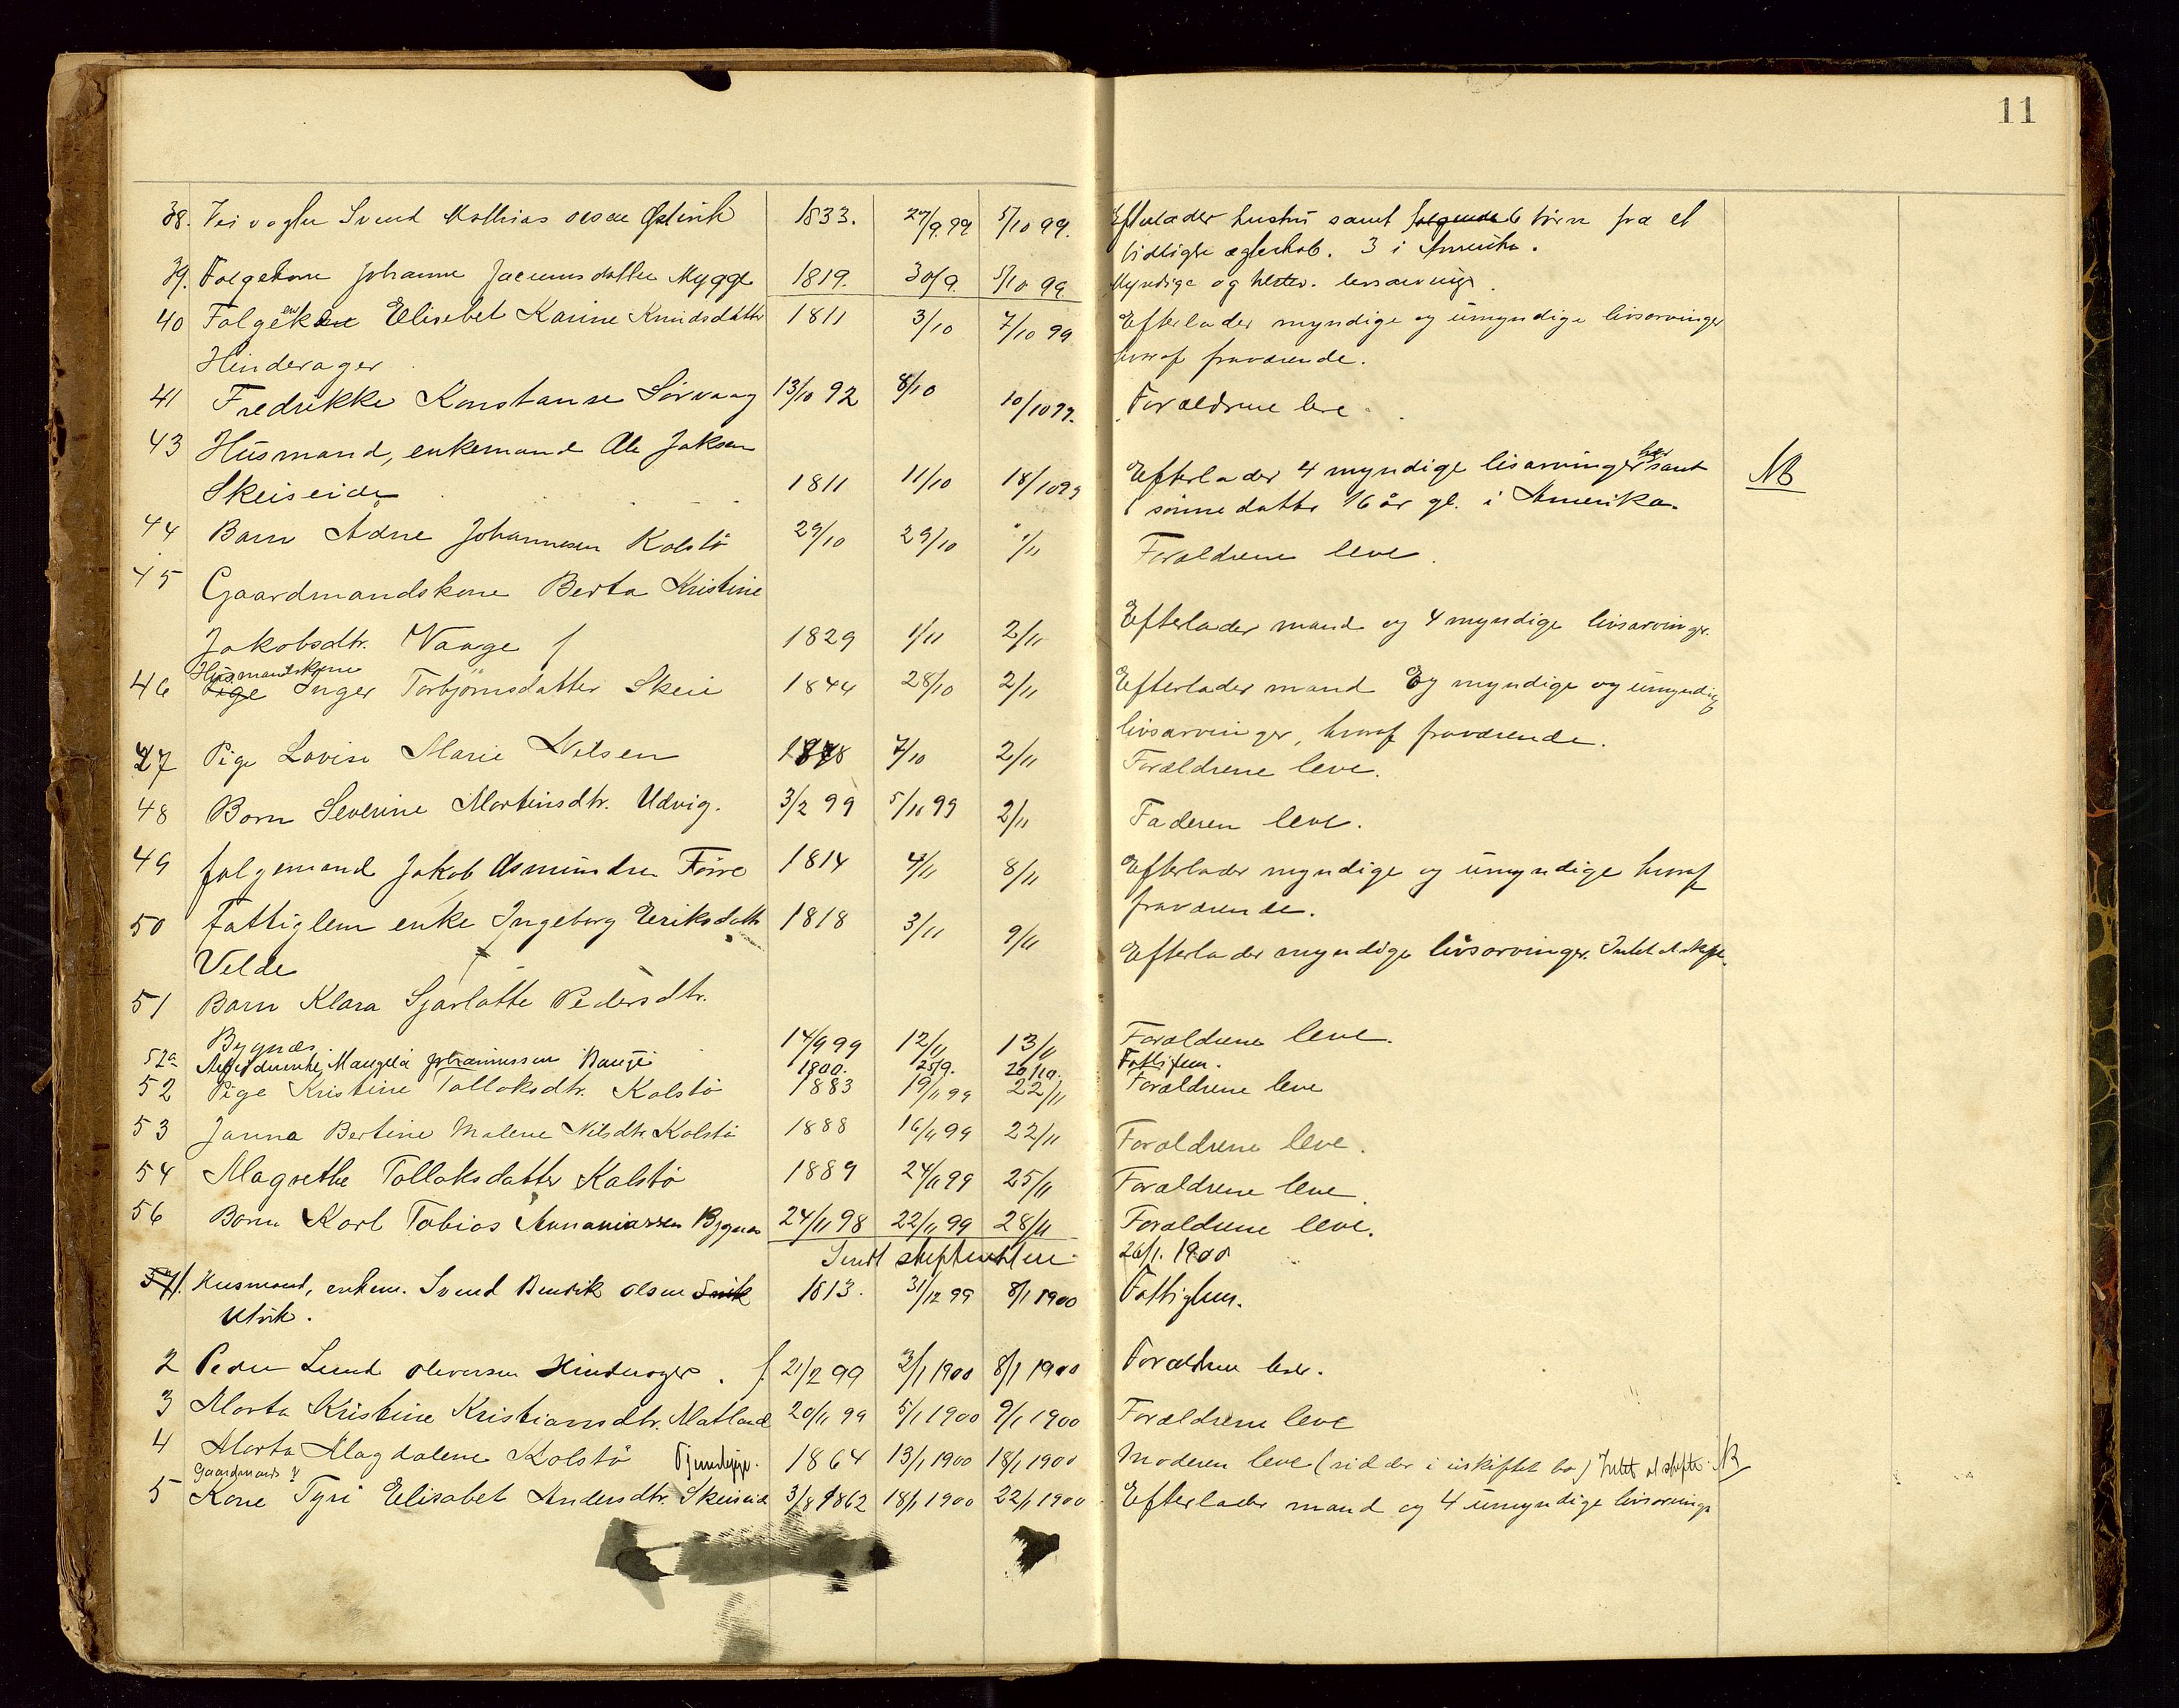 11
38. Veivogter Svend Mathias Olsen 1833. 27/9 99 5/10 99. Efterlader hustru samt følgende 6 børn fra et
tidligere ægteskab. 3 i Amerika.
39. Folgekone Johanne datter Mygge 1819. 30/9. 5/10 99 Myndige og livsarvinger.
40 Folgeenke Elisebet Karine Knudsdatter 1811 3/10 7/10 99 Efterlader myndige og umyndige livsarvinger
Hinderager hvoraf fraværende.
41 Fredrikke Konstanse Sørvaag 13/10 92 8/10 10/10 99. Forældrene leve
43 Husmand, enkemand Ole Jaksen
Skeiseide 1811 11/10 18/10 99 Efterlader 4 myndige livsarvinger her samt NB
1 sønnedatter 16 år gl. i Amerika.
44 Barn Adne Johannesen Kolstø 29/10 29/10 1/11 Forældrene leve.
45 Gaardmandskone Berta Kristine
Jakobsdtr. Vaage 1829 1/11 2/11 Efterlader mand og 4 myndige livsarvinger.
46 Pige Husmandskone Inger Torbjørnsdatter Skeie 1844 28/10 2/11 Efterlader mand og myndige og umyndige
livsarvinger, hvoraf fraværende.
47 Pige Lovise Marie Nilsen 7/10 2/11 Forældrene leve.
48 Barn Severine Martinsdtr. Udvig. 3/2 99 5/10 99 2/11 Faderen leve.
49 folgemand Jakob Asmundsen Førre 1814 4/11 8/11 Efterlader myndige og umyndige hvoraf
fraværende.
50 Fattiglem enke Ingeborg Eriksdatter 1818 3/11 9/11 Efterlader myndige livsarvinger. Intet at skifte.
Velde
51 Barn Klara Sjarlotte Pedersdtr.
Bygnes 14/9 99 12/11 13/11 Forældrene leve.
52a Johannessen 1800. 25/9. 20/10. Fattiglem.
52 Pige Kristine Tolloksdtr. Kolstø 1883 19/11 99 22/11 Forældrene leve
53 Janna Bertine Malene Nilsdtr. Kolstø 1888 16/11 99 22/11 Forældrene leve.
54 Magrethe Tolloksdatter Kalstø 1889 24/11 99 25/11 Forældrene leve.
56 Barn Karl Tobias Annaniassen Bygnes 24/11 98 22/11 99 28/11 Forældrene leve.
Sendt skifteretten 26/1. 1900
57/1. Husmand, enkem. Svend Bendik Olsen 1813. 31/12 99 8/1 1900 Fattiglem.
Utvik.
2 Peder Lund Oliversen Hinderager. f. 21/2 99 3/1 1900 8/1 1900 Forældrene lever.
3 Marta Kristine Kristiansdtr. Matland 20/11 99 5/1 1900 9/1 1900 Forældrene leve
4 Marta Magdalene Kolstø Tjenestepige. 1864 13/1 1900 18/1 1900 Moderen leve (sidder i uskiftet bo) Intet at skifte. NB
5 Gaardmands Kone Tyri Elisabet Andersdtr. Skeiseid 3/8 1862 18/1 1900 22/1 1900 Efterlader mand og 4 umyndige livsarvinger